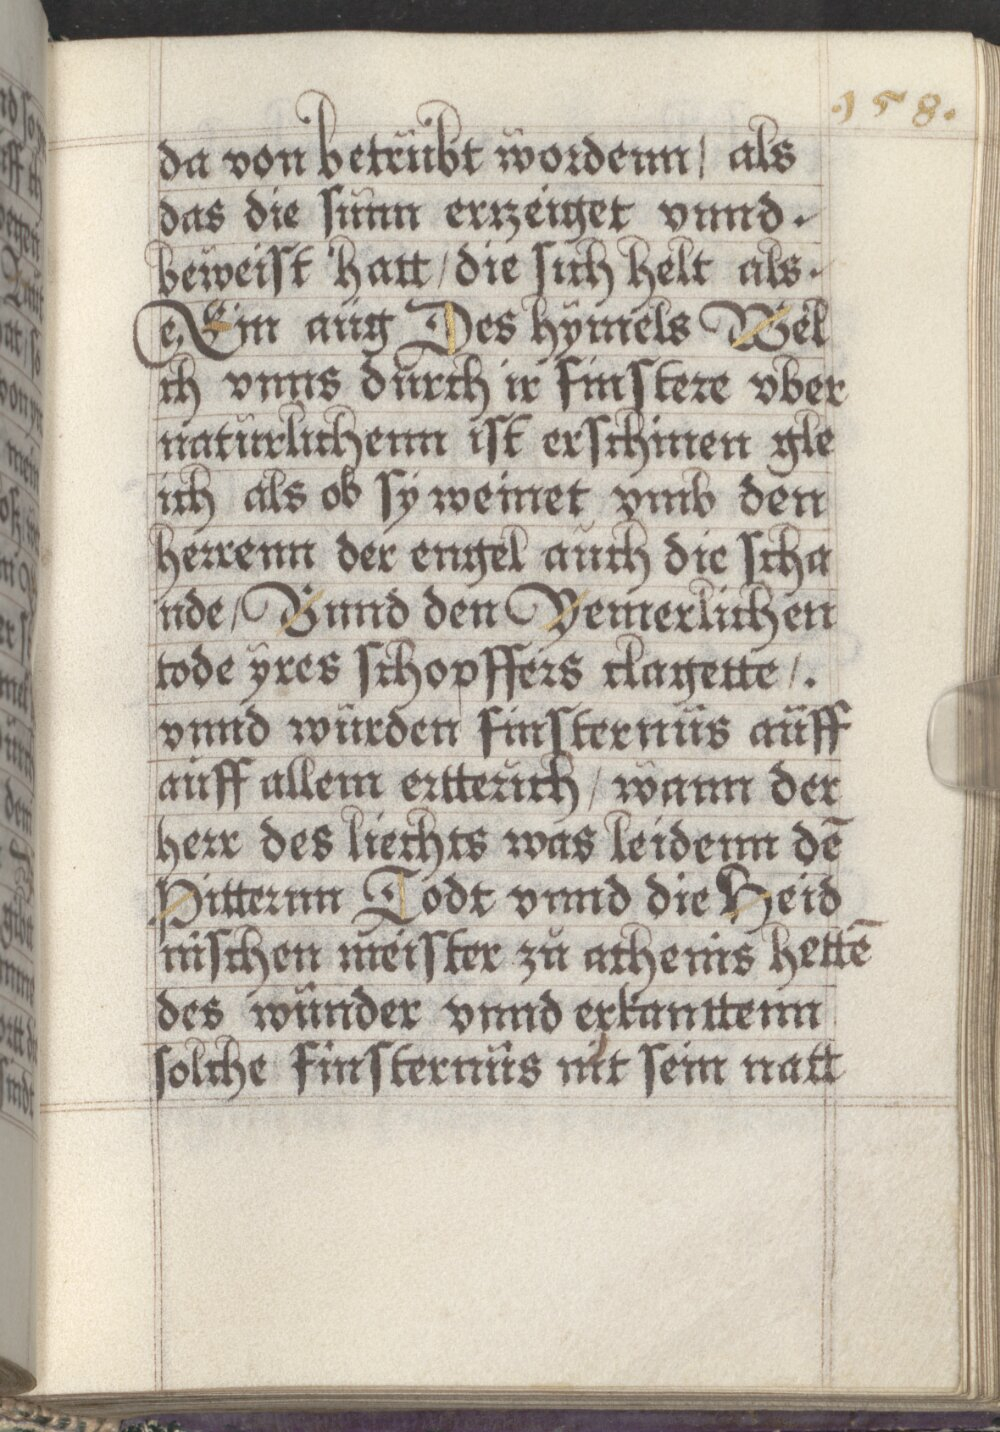 .158.
da von betrübt wordenn / als
das die sünn erzeiget vnnd.
beweist hatt / die sich helt als.
Ein aüg Des hÿmels Wel
ch vnns dürch ir finstere vber
natürlichenn ist erschinen gle
ich als ob sÿ weinet vmb den
herrenn der engel aüch die scha
nde / Vnnd den Yemerlichen
tode ÿres schopffers clagette /.
vnnd würden finsternüs aüff
aüff allem ertterich / wann der
herr des liechts was leidenn dē
Pitternn Todt vnnd die Heid
nischen meister zü athenis hettē
des wünder vnnd erkanttenn
solche finsternüs nit sein natt